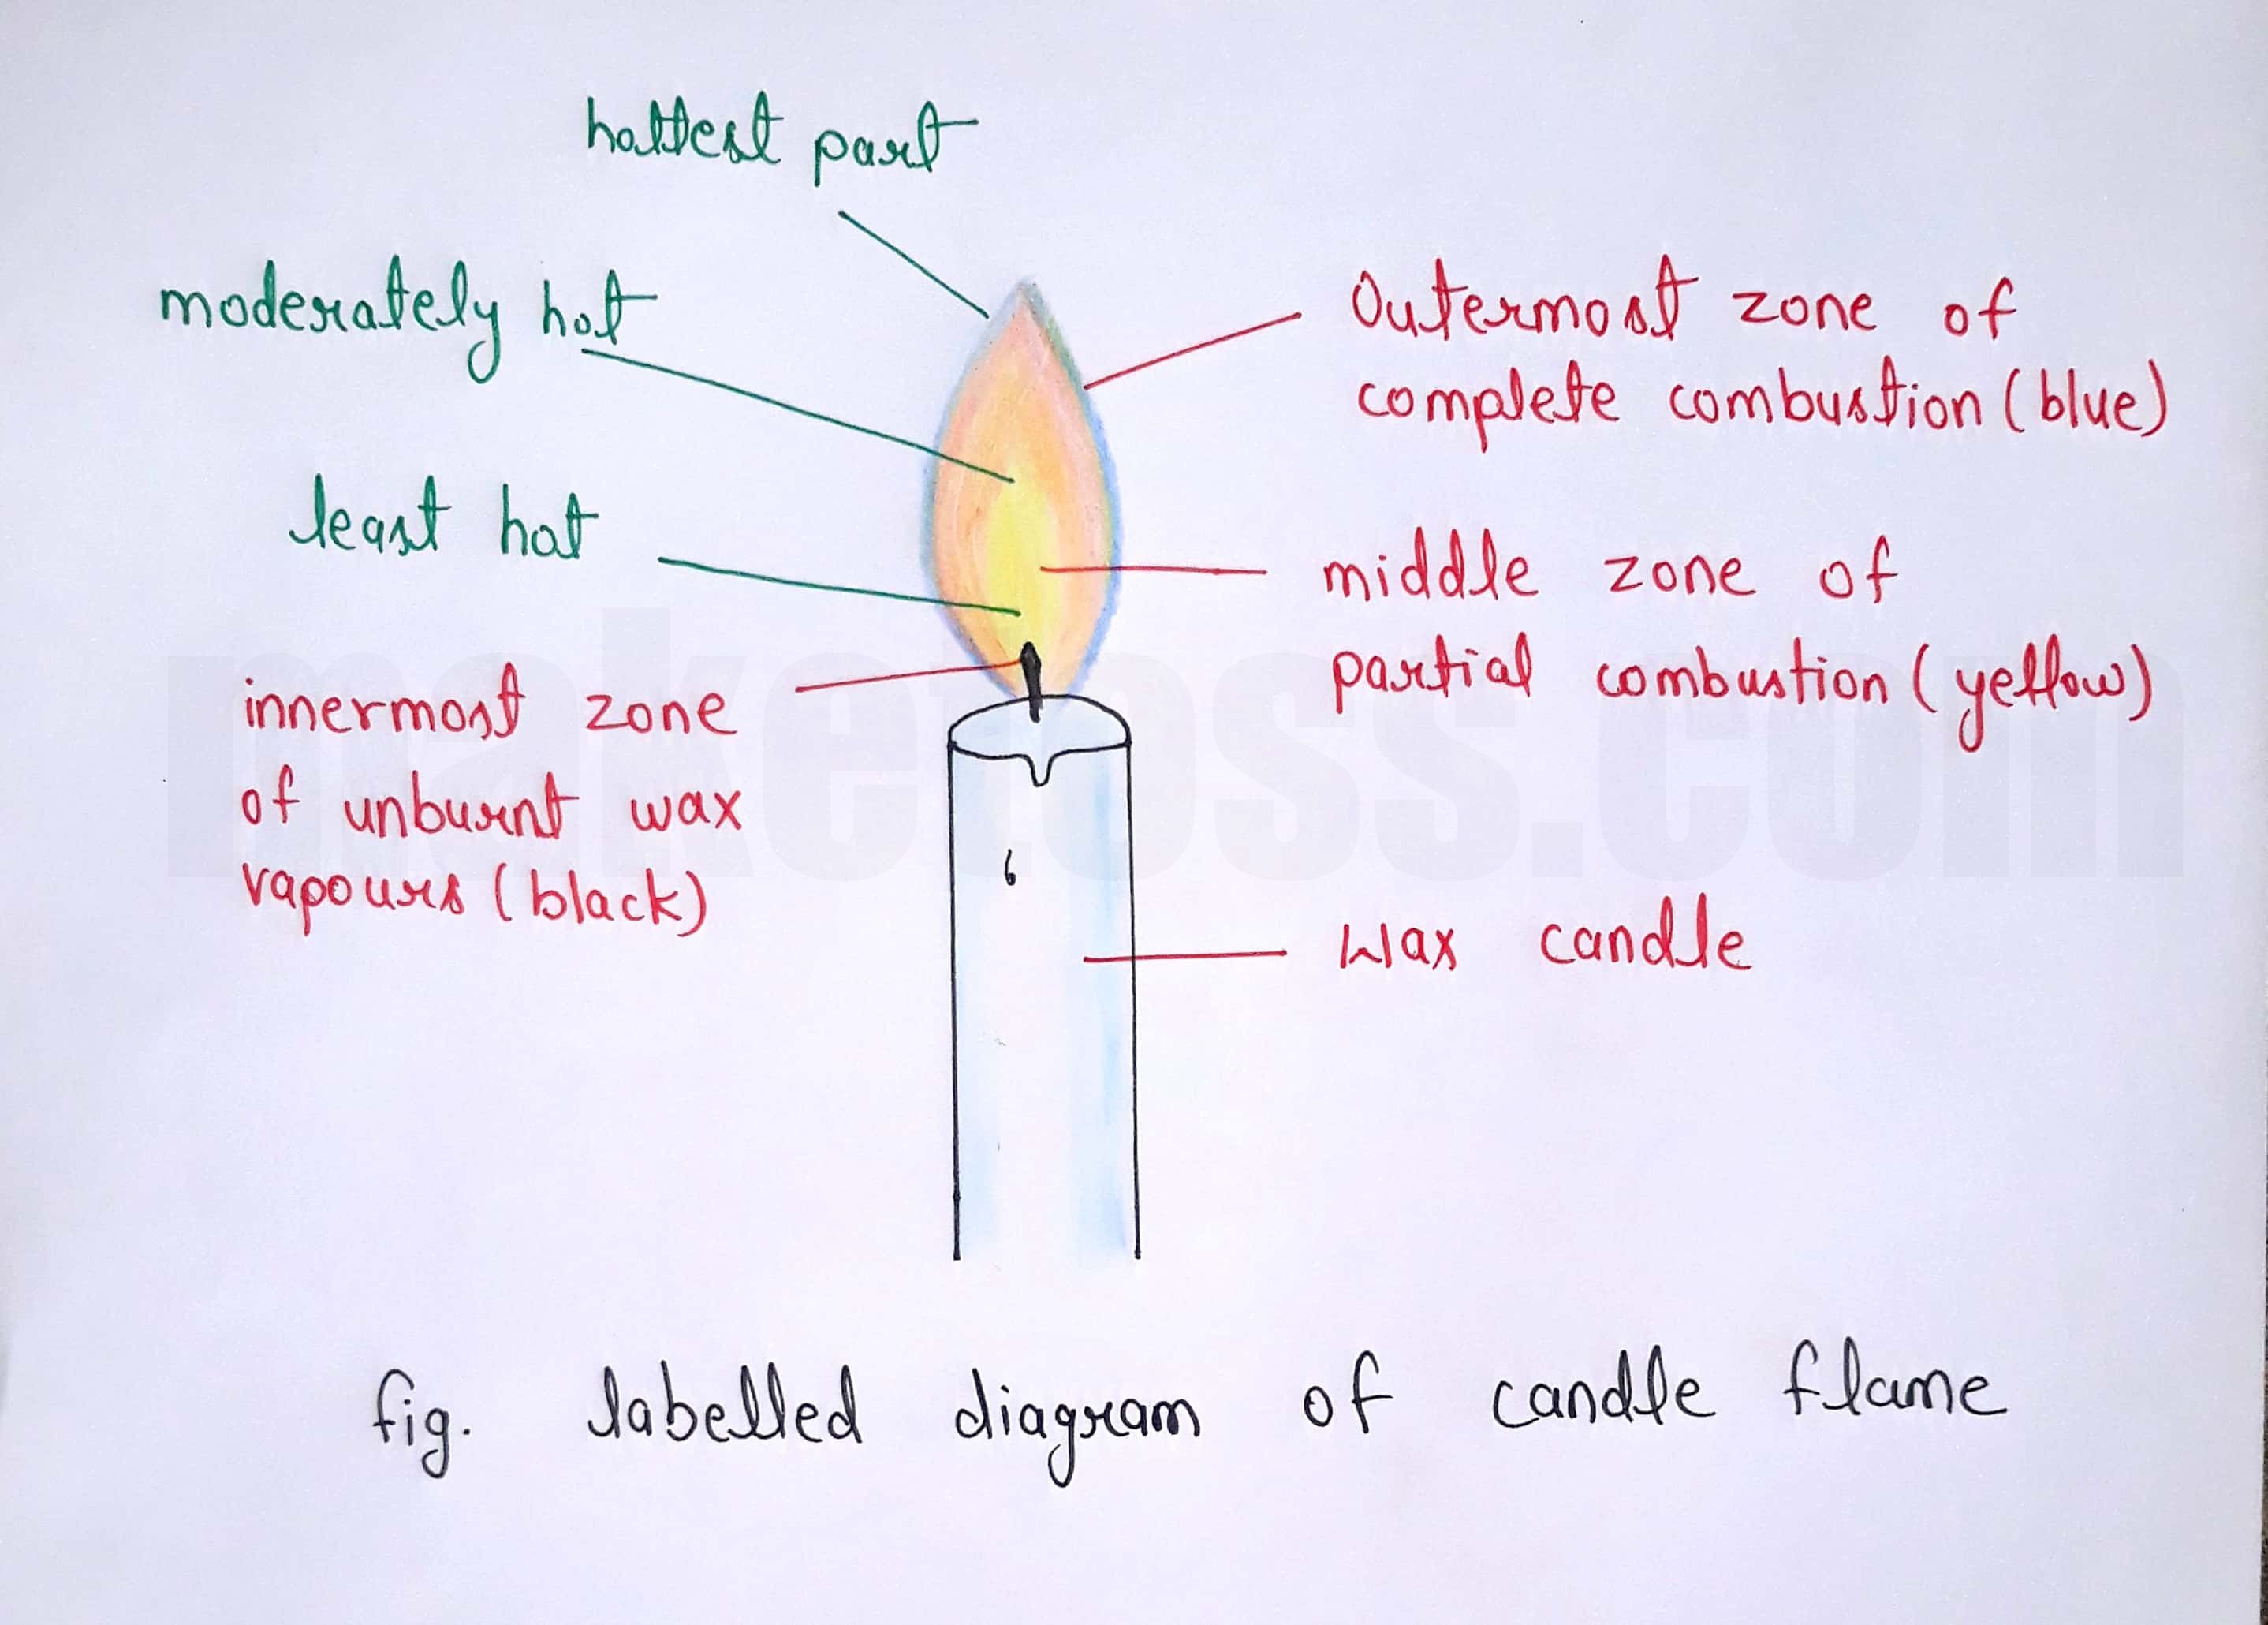 hottest part
moderately hot
least hot
innermost zone
of unburnt wax
vapours (black)
Outermost zone of
complete combustion (blue)
middle zone of
partial combustion (yellow)
Wax candle
maketoss.com
fig. labelled diagram of candle flame